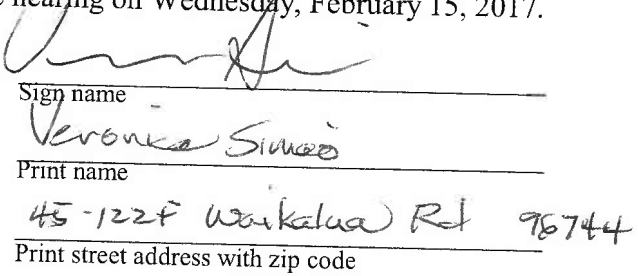 hearing on Wednesday, February 15, 2017.
Sign name
Veronica Simao
Print name
45-122F Waikalua Rd 96744
Print street address with zip code